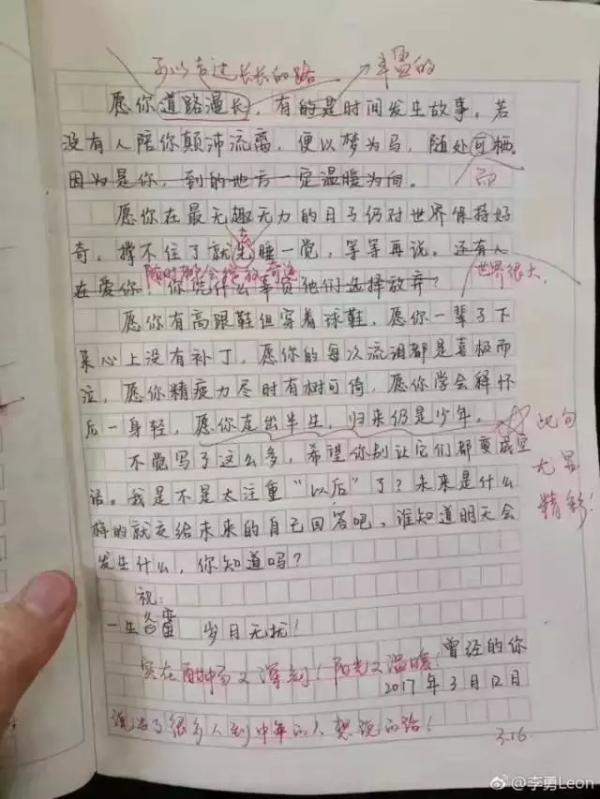 可以奔过长长的路 丰盈的
愿你道路漫长，有的是时间发生故事。若
没有人陪你颠沛流离，便以梦为马，随处可栖。
因为是你，到的地方一定温暖为向。
而
愿你在最无趣无力的日子仍对世界保持好
奇。撑不住了就先睡一觉，等等再说。还有人
去
随时都会绽放奇迹
世界很大
在爱你，你凭什么辜负他们选择放弃？
愿你有高跟鞋但穿着球鞋，愿你一辈子下
来心上没有补丁，愿你的每次流泪都是喜极而
泣，愿你精疲力尽时有树可倚，愿你学会释怀
后一身轻，愿你走出半生，归来仍是少年。
此句
尤显
精彩！
不觉写了这么多，希望你别让它们都变成空
话。我是不是太注重“以后”了？未来是什么
样的就交给未来的自己回答吧，谁知道明天会
发生什么，你知道吗？
祝：
一生 岁月无扰！
曾经的你
实在 又深刻！阳光又温暖！
2017年3月12日
说出了很多人到中年的人想说的话！
3.16
@李勇Leon